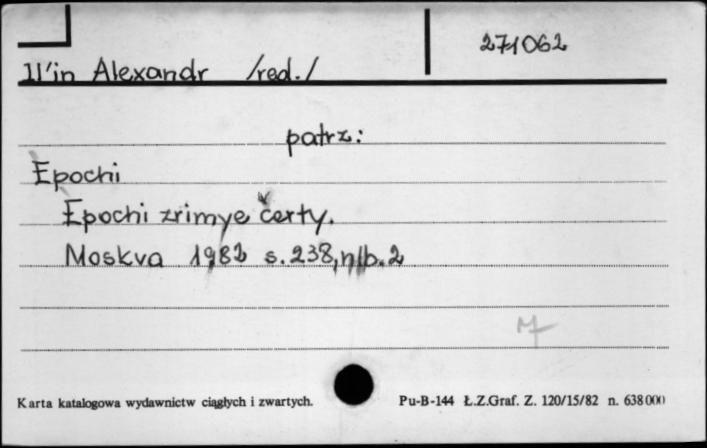 271062
Il'in Alexandr /red./
patrz:
Èpochi
Èpochi zrimye čerty.
Moskva 1982 s. 238, nlb. 2
Karta katalogowa wydawnictw ciągłych i zwartych.
Pu-B-144 Ł.Z.Graf. Z. 120/15/82 n. 638000